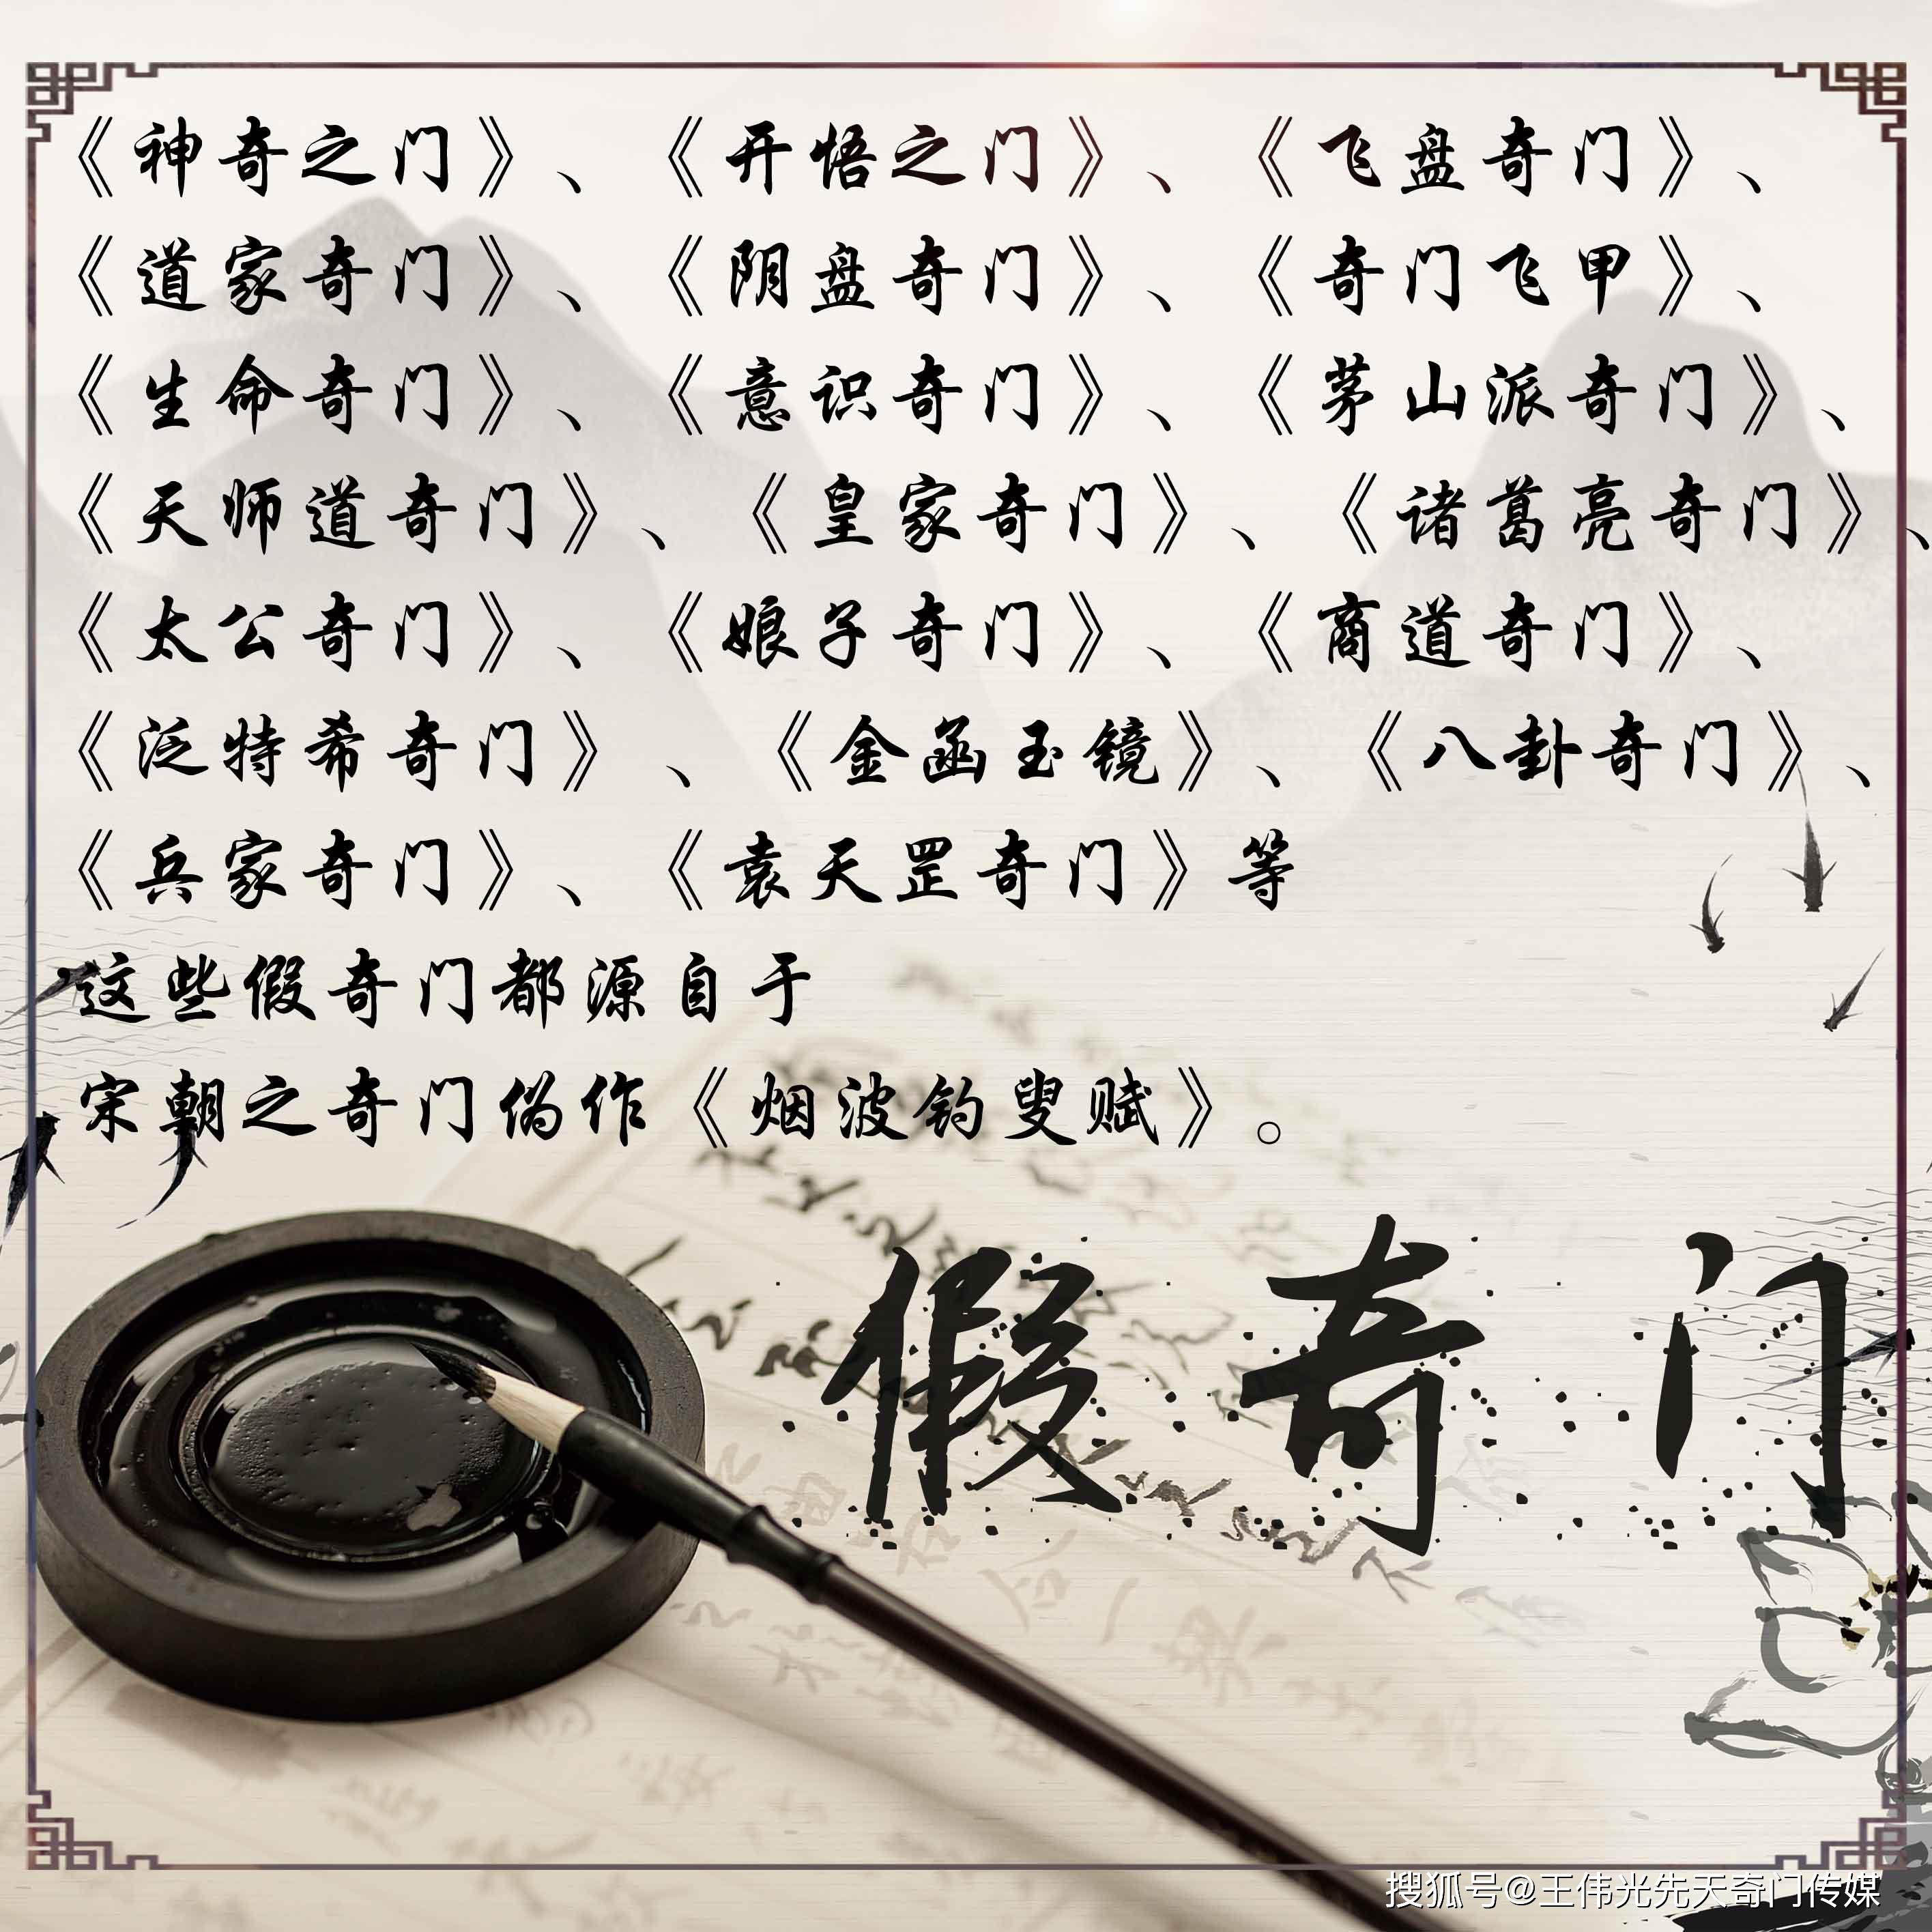 《神奇之门》、《开悟之门》、《飞盘奇门》、
《道家奇门》、《阴盘奇门》、《奇门飞甲》、
《生命奇门》、《意识奇门》、《茅山派奇门》、
《天师道奇门》、《皇家奇门》、《诸葛亮奇门》、
《太公奇门》、《娘子奇门》、《商道奇门》、
《泛特希奇门》、《金函玉镜》、《八卦奇门》、
《兵家奇门》、《袁天罡奇门》等
这些假奇门都源自于
宋朝之奇门伪作《烟波钓叟赋》。
假奇门
搜狐号@王伟光先天奇门传媒